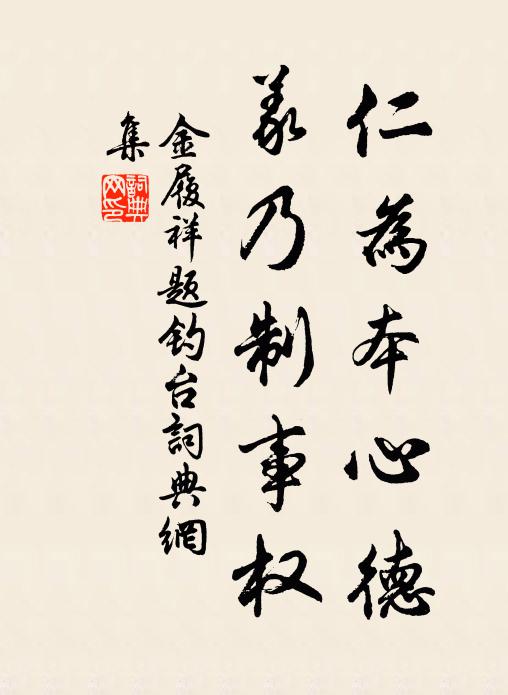 仁為本心德
義乃制事权
金履祥题钓台詞典網
集
詞典
网印